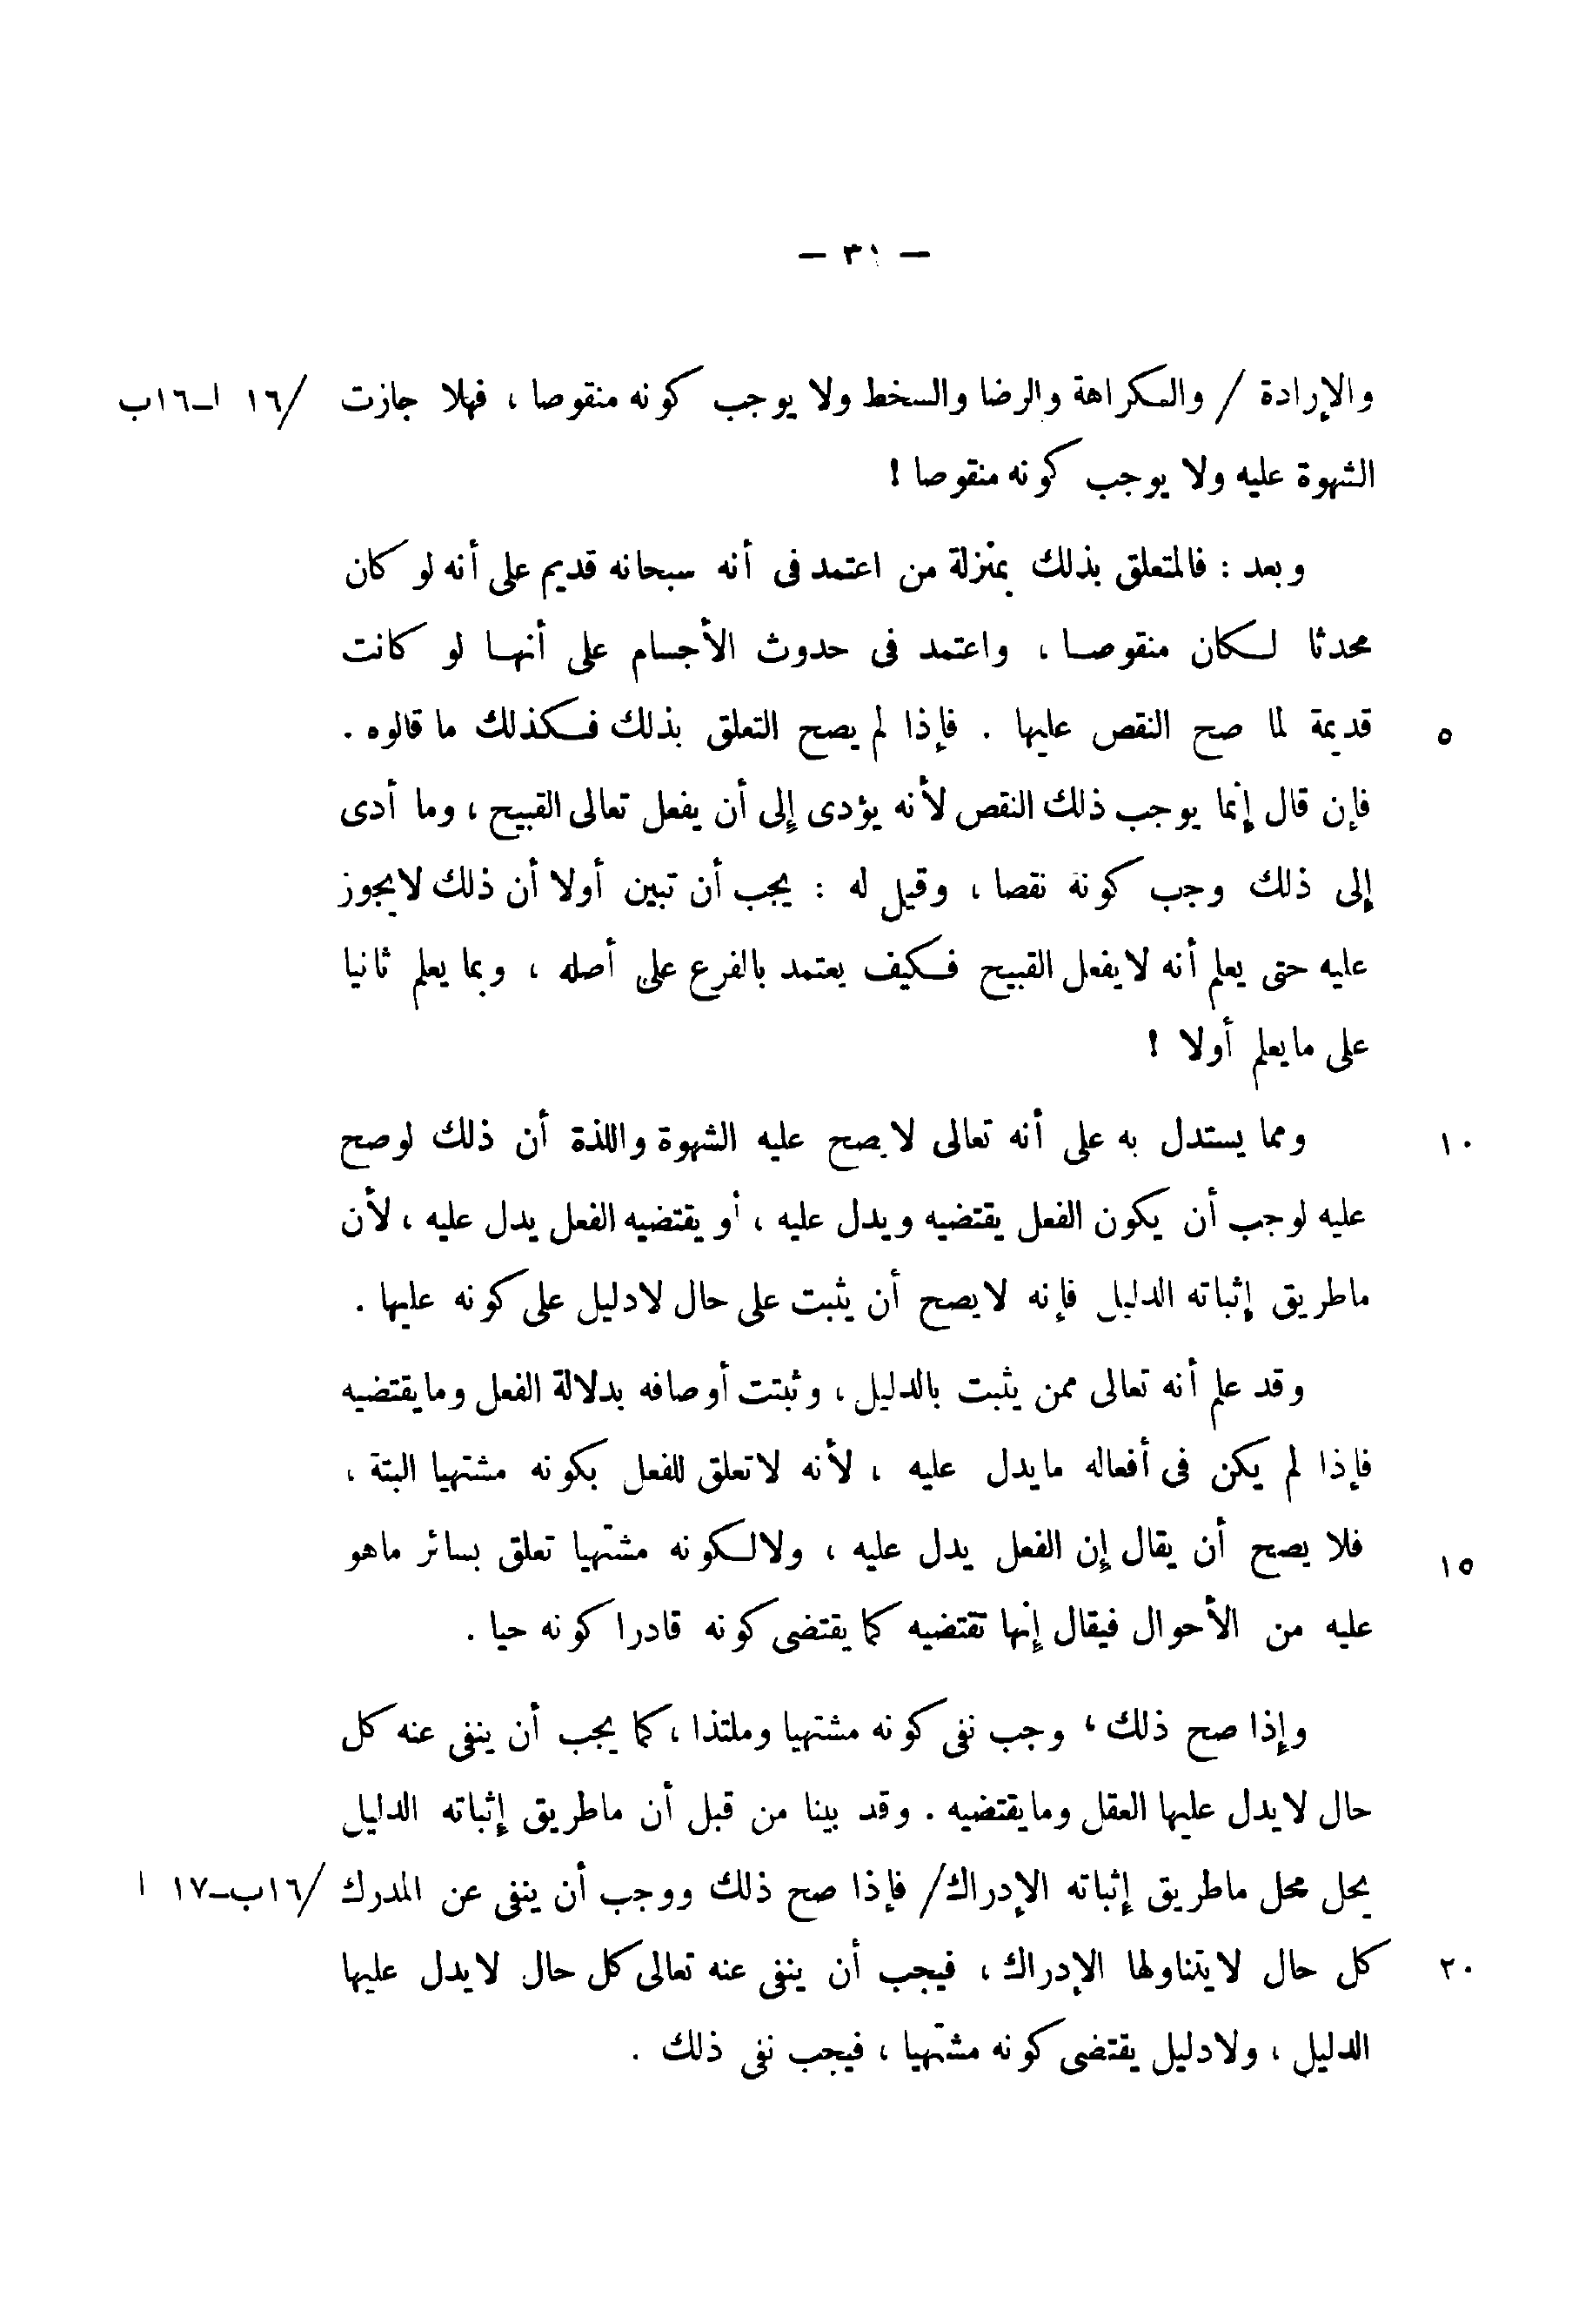 — ٣١ —
والإرادة / والكراهة والرضا والسخط ولا يوجب كونه منقوصا ، فهلا جازت /١٦ ا–١٦ب
الشهوة عليه ولا يوجب كونه منقوصا !
وبعد : فالمتعلق بذلك بمنزلة من اعتمد فى أنه سبحانه قديم على أنه لو كان
محدثا لكان منقوصا ، واعتمد فى حدوث الأجسام على أنها لو كانت
قديمة لما صح النقص عليها . فإذا لم يصح التعلق بذلك فكذلك ما قالوه . ٥
فإن قال إنما يوجب ذلك النقص لأنه يؤدى إلى أن يفعل تعالى القبيح ، وما أدى
إلى ذلك وجب كونه نقصا ، وقيل له : يجب أن تبين أولا أن ذلك لايجوز
عليه حتى يعلم أنه لايفعل القبيح فكيف يعتمد بالفرع على أصله ، وبما يعلم ثانيا
على مايعلم أولا !
ومما يستدل به على أنه تعالى لايصح عليه الشهوة واللذة أن ذلك لوصح ١٠
عليه لوجب أن يكون الفعل يقتضيه ويدل عليه ، أو يقتضيه الفعل يدل عليه ، لأن
ماطريق إثباته الدليل فإنه لايصح أن يثبت على حال لادليل على كونه عليها .
وقد علم أنه تعالى ممن يثبت بالدليل ، وثبتت أوصافه بدلالة الفعل ومايقتضيه
فإذا لم يكن فى أفعاله مايدل عليه ، لأنه لاتعلق للفعل بكونه مشتهيا البتة ،
فلا يصح أن يقال إن الفعل يدل عليه ، ولالكونه مشتهيا تعلق بسائر ماهو ١٥
عليه من الأحوال فيقال إنها تقتضيه كما يقتضى كونه قادرا كونه حيا .
وإذا صح ذلك ، وجب نفى كونه مشتهيا وملتذا ، كما يجب أن ينفى عنه كل
حال لايدل عليها العقل ومايقتضيه . وقد بينا من قبل أن ماطريق إثباته الدليل
يحل محل ماطريق إثباته الإدراك/ فإذا صح ذلك ووجب أن ينفى عن المدرك /١٦ب–١٧ ا
كل حال لايتناولها الإدراك ، فيجب أن ينفى عنه تعالى كل حال لايدل عليها ٢٠
الدليل ، ولادليل يقتضى كونه مشتهيا ، فيجب نفى ذلك .